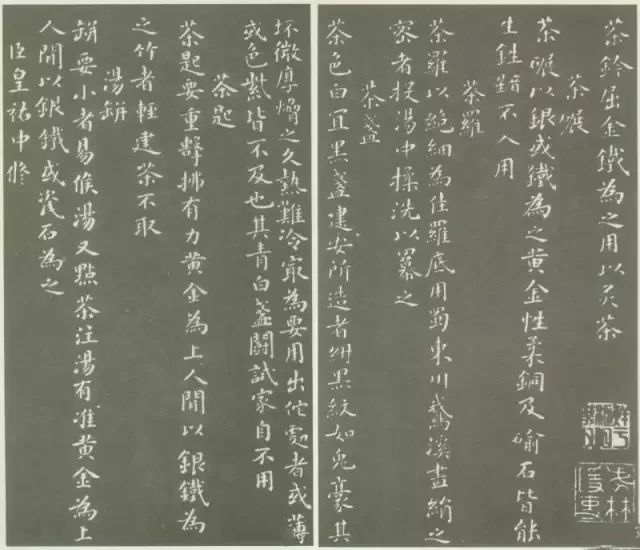 茶鈐屈金鐵為之用以炙茶
茶碾
茶碾以銀或鐵為之黃金性柔銅及鍮石皆能
生鉎不入用
茶羅
茶羅以絕細為佳羅底用蜀東川鵞溪畫絹之
密者投湯中揉洗以羃之
茶盞
茶色白冝黑盞建安所造者紺黑紋如兔豪其
坯微厚熁之久熱難冷冣為要用出佗處者或薄
或色紫皆不及也其青白盞鬭試家自不用
茶匙
茶匙要重擊拂有力黃金為上人間以銀鐵為
之竹者輕建茶不取
湯缾
缾要小者易候湯又點茶注湯有准黃金為上
人間以銀鐵或瓷石為之
臣皇祐中修